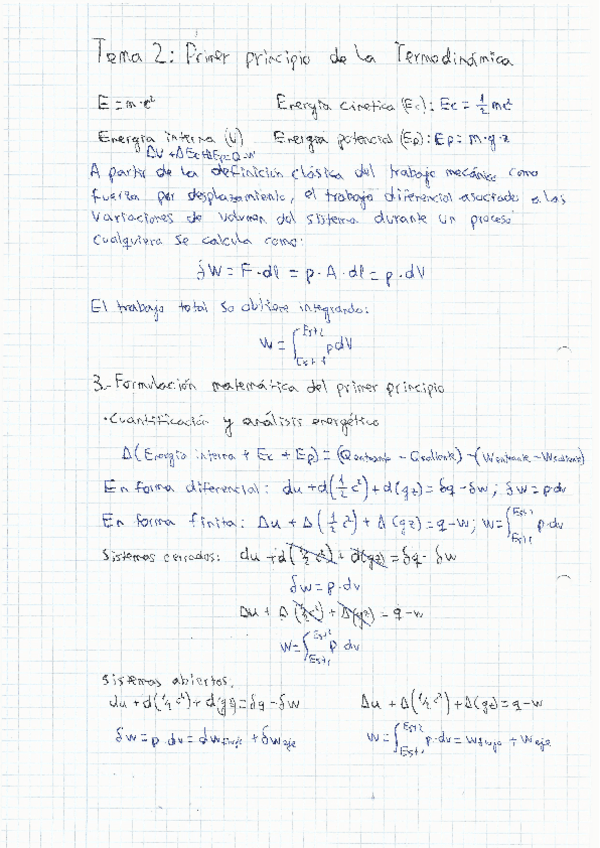 Tema 2: Primer principio de la Termodinámica
E = m·c² Energía cinetica (Ec): Ec = 1/2 mc²
Energía interna (U) Energía potencial (Ep): Ep = m·g·z
ΔU + ΔEc + ΔEp = Q - W
A partir de la definición clásica del trabajo mecánico como
fuerza por desplazamiento, el trabajo diferencial asociado a las
variaciones de volumen del sistema durante un proceso
cualquiera se calcula como:
δW = F·dl = p·A·dl = p·dV
El trabajo total se obtiene integrando:
W = ∫_{Est 1}^{Est 2} p dV
3.- Formulación matemática del primer principio
·Cuantificación y análisis energético
Δ(Energía interna + Ec + Ep) = (Qentrante - Qsaliente) - (Wentrante - Wsaliente)
En forma diferencial: du + d(1/2 c²) + d(gz) = δq - δw ; δw = p dv
En forma finita: Δu + Δ(1/2 c²) + Δ(gz) = q - w ; w = ∫_{Est 1}^{Est 2} p·dv
Sistemas cerrados: du + d(1/2 c²) + d(gz) = δq - δw
δw = p·dv
Δu + Δ(1/2 c²) + Δ(gz) = q - w
w = ∫_{Est 1}^{Est 2} p dv
Sistemas abiertos.
du + d(1/2 c²) + d(gz) = δq - δw Δu + Δ(1/2 c²) + Δ(gz) = q - w
δw = p·dv = dwflujo + δweje w = ∫_{Est 1}^{Est 2} p·dv = wflujo + weje